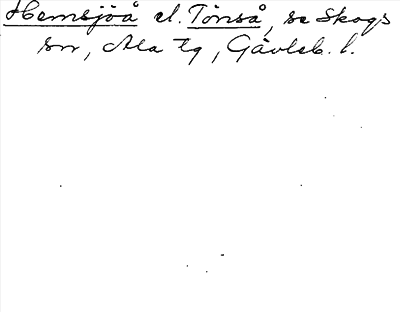 Hemsjöå el. Tönså, se Skogs
sn, Ala tg, Gävleb. l.